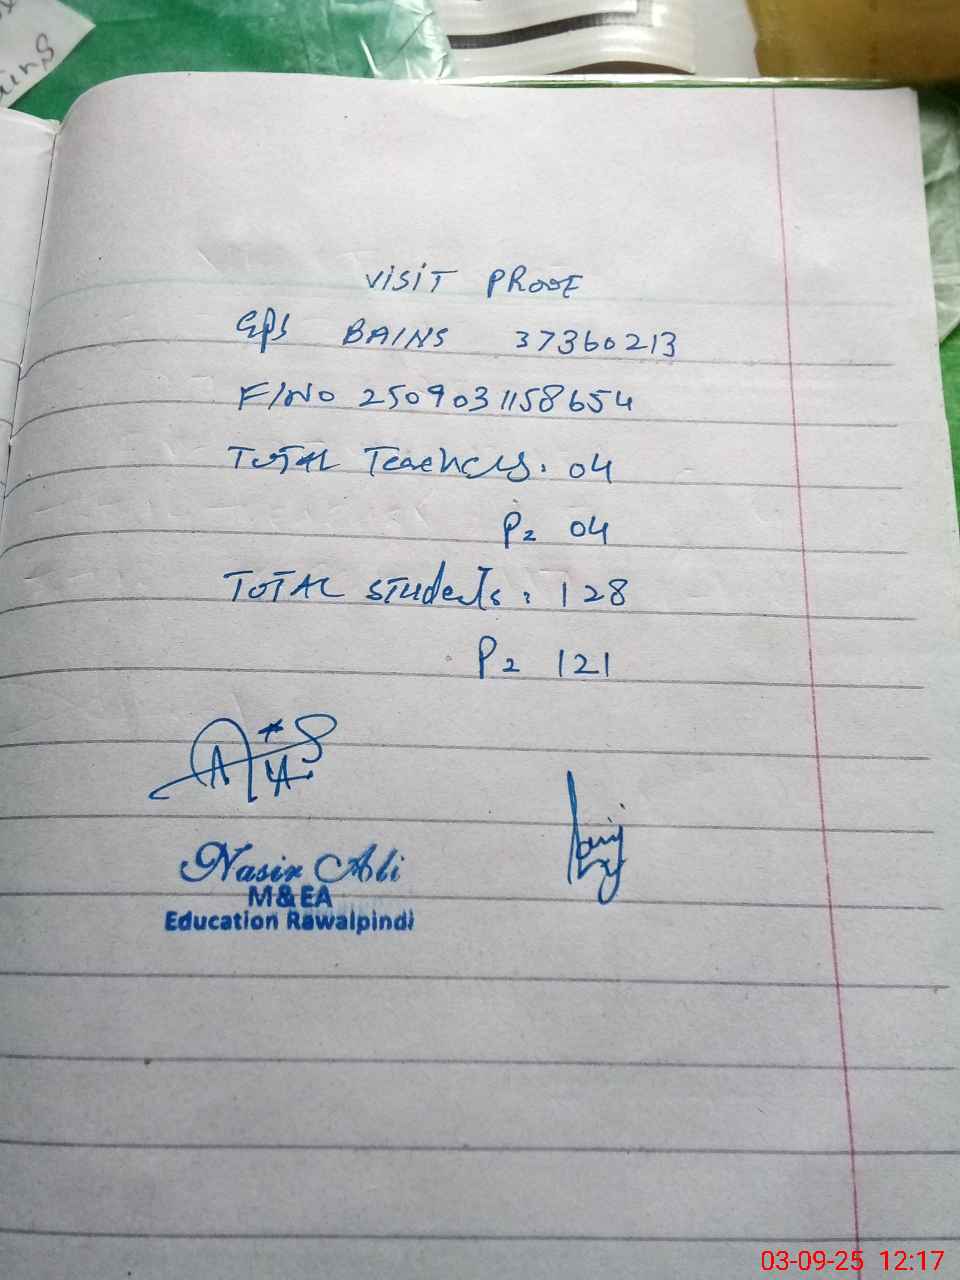 VISIT PROOF
GPS BAINS 37360213
F/NO 2509031158654
TOTAL Teachers: 04
P= 04
TOTAL students: 128
P= 121
Nasir Ali
M&EA
Education Rawalpindi
03-09-25 12:17